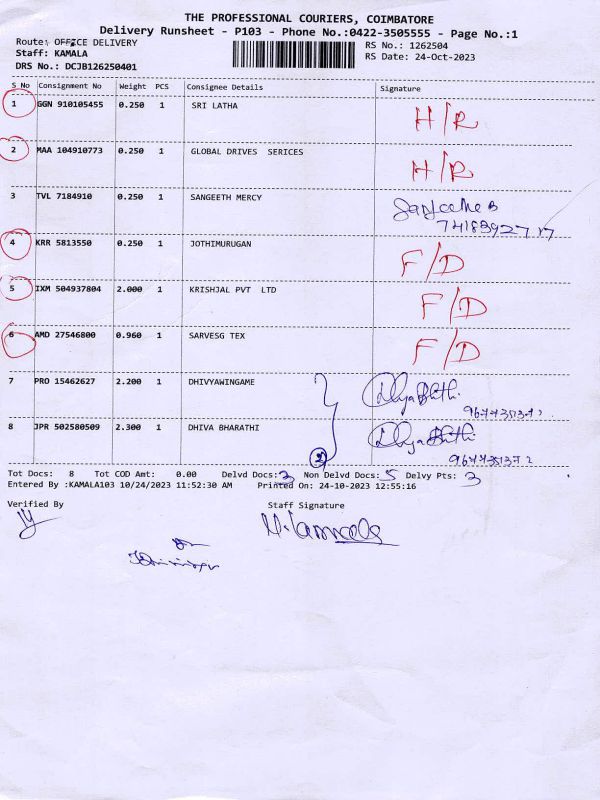 THE PROFESSIONAL COURIERS, COIMBATORE
Delivery Runsheet - P103 - Phone No.:0422-3505555 - Page No.:1
Route: OFFICE DELIVERY
RS No.: 1262504
Staff: KAMALA
RS Date: 24-Oct-2023
DRS No.: DCJB126250401
S No Consignment No Weight PCS Consignee Details Signature
1 GGN 910105455 0.250 1 SRI LATHA H/R
2 MAA 104910773 0.250 1 GLOBAL DRIVES SERICES H/R
3 TVL 7184910 0.250 1 SANGEETH MERCY
4 KRR 5813550 0.250 1 JOTHIMURUGAN F/D
5 IXM 504937804 2.000 1 KRISHJAL PVT LTD F/D
6 AMD 27546800 0.960 1 SARVESG TEX F/D
7 PRO 15462627 2.200 1 DHIVYAWINGAME
8 JPR 502580509 2.300 1 DHIVA BHARATHI 2
Tot Docs: 8 Tot COD Amt: 0.00 Delvd Docs: 3 Non Delvd Docs: 5 Delvy Pts: 3
Entered By :KAMALA103 10/24/2023 11:52:30 AM Printed On: 24-10-2023 12:55:16
Verified By Staff Signature